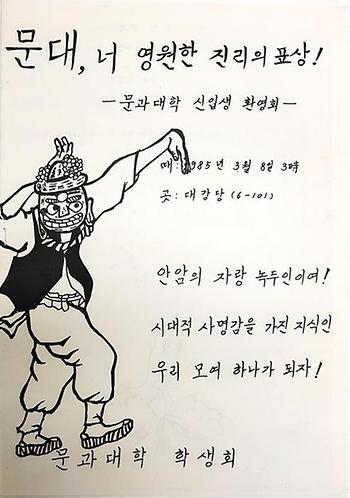 문대, 너 영원한 진리의 표상!
— 문과대학 신입생 환영회 —
때: 1985년 3월 8일 3時
곳: 대강당 (6-101)
안암의 자랑 녹두인이여!
시대적 사명감을 가진 지식인
우리 모여 하나가 되자!
문과대학 학생회